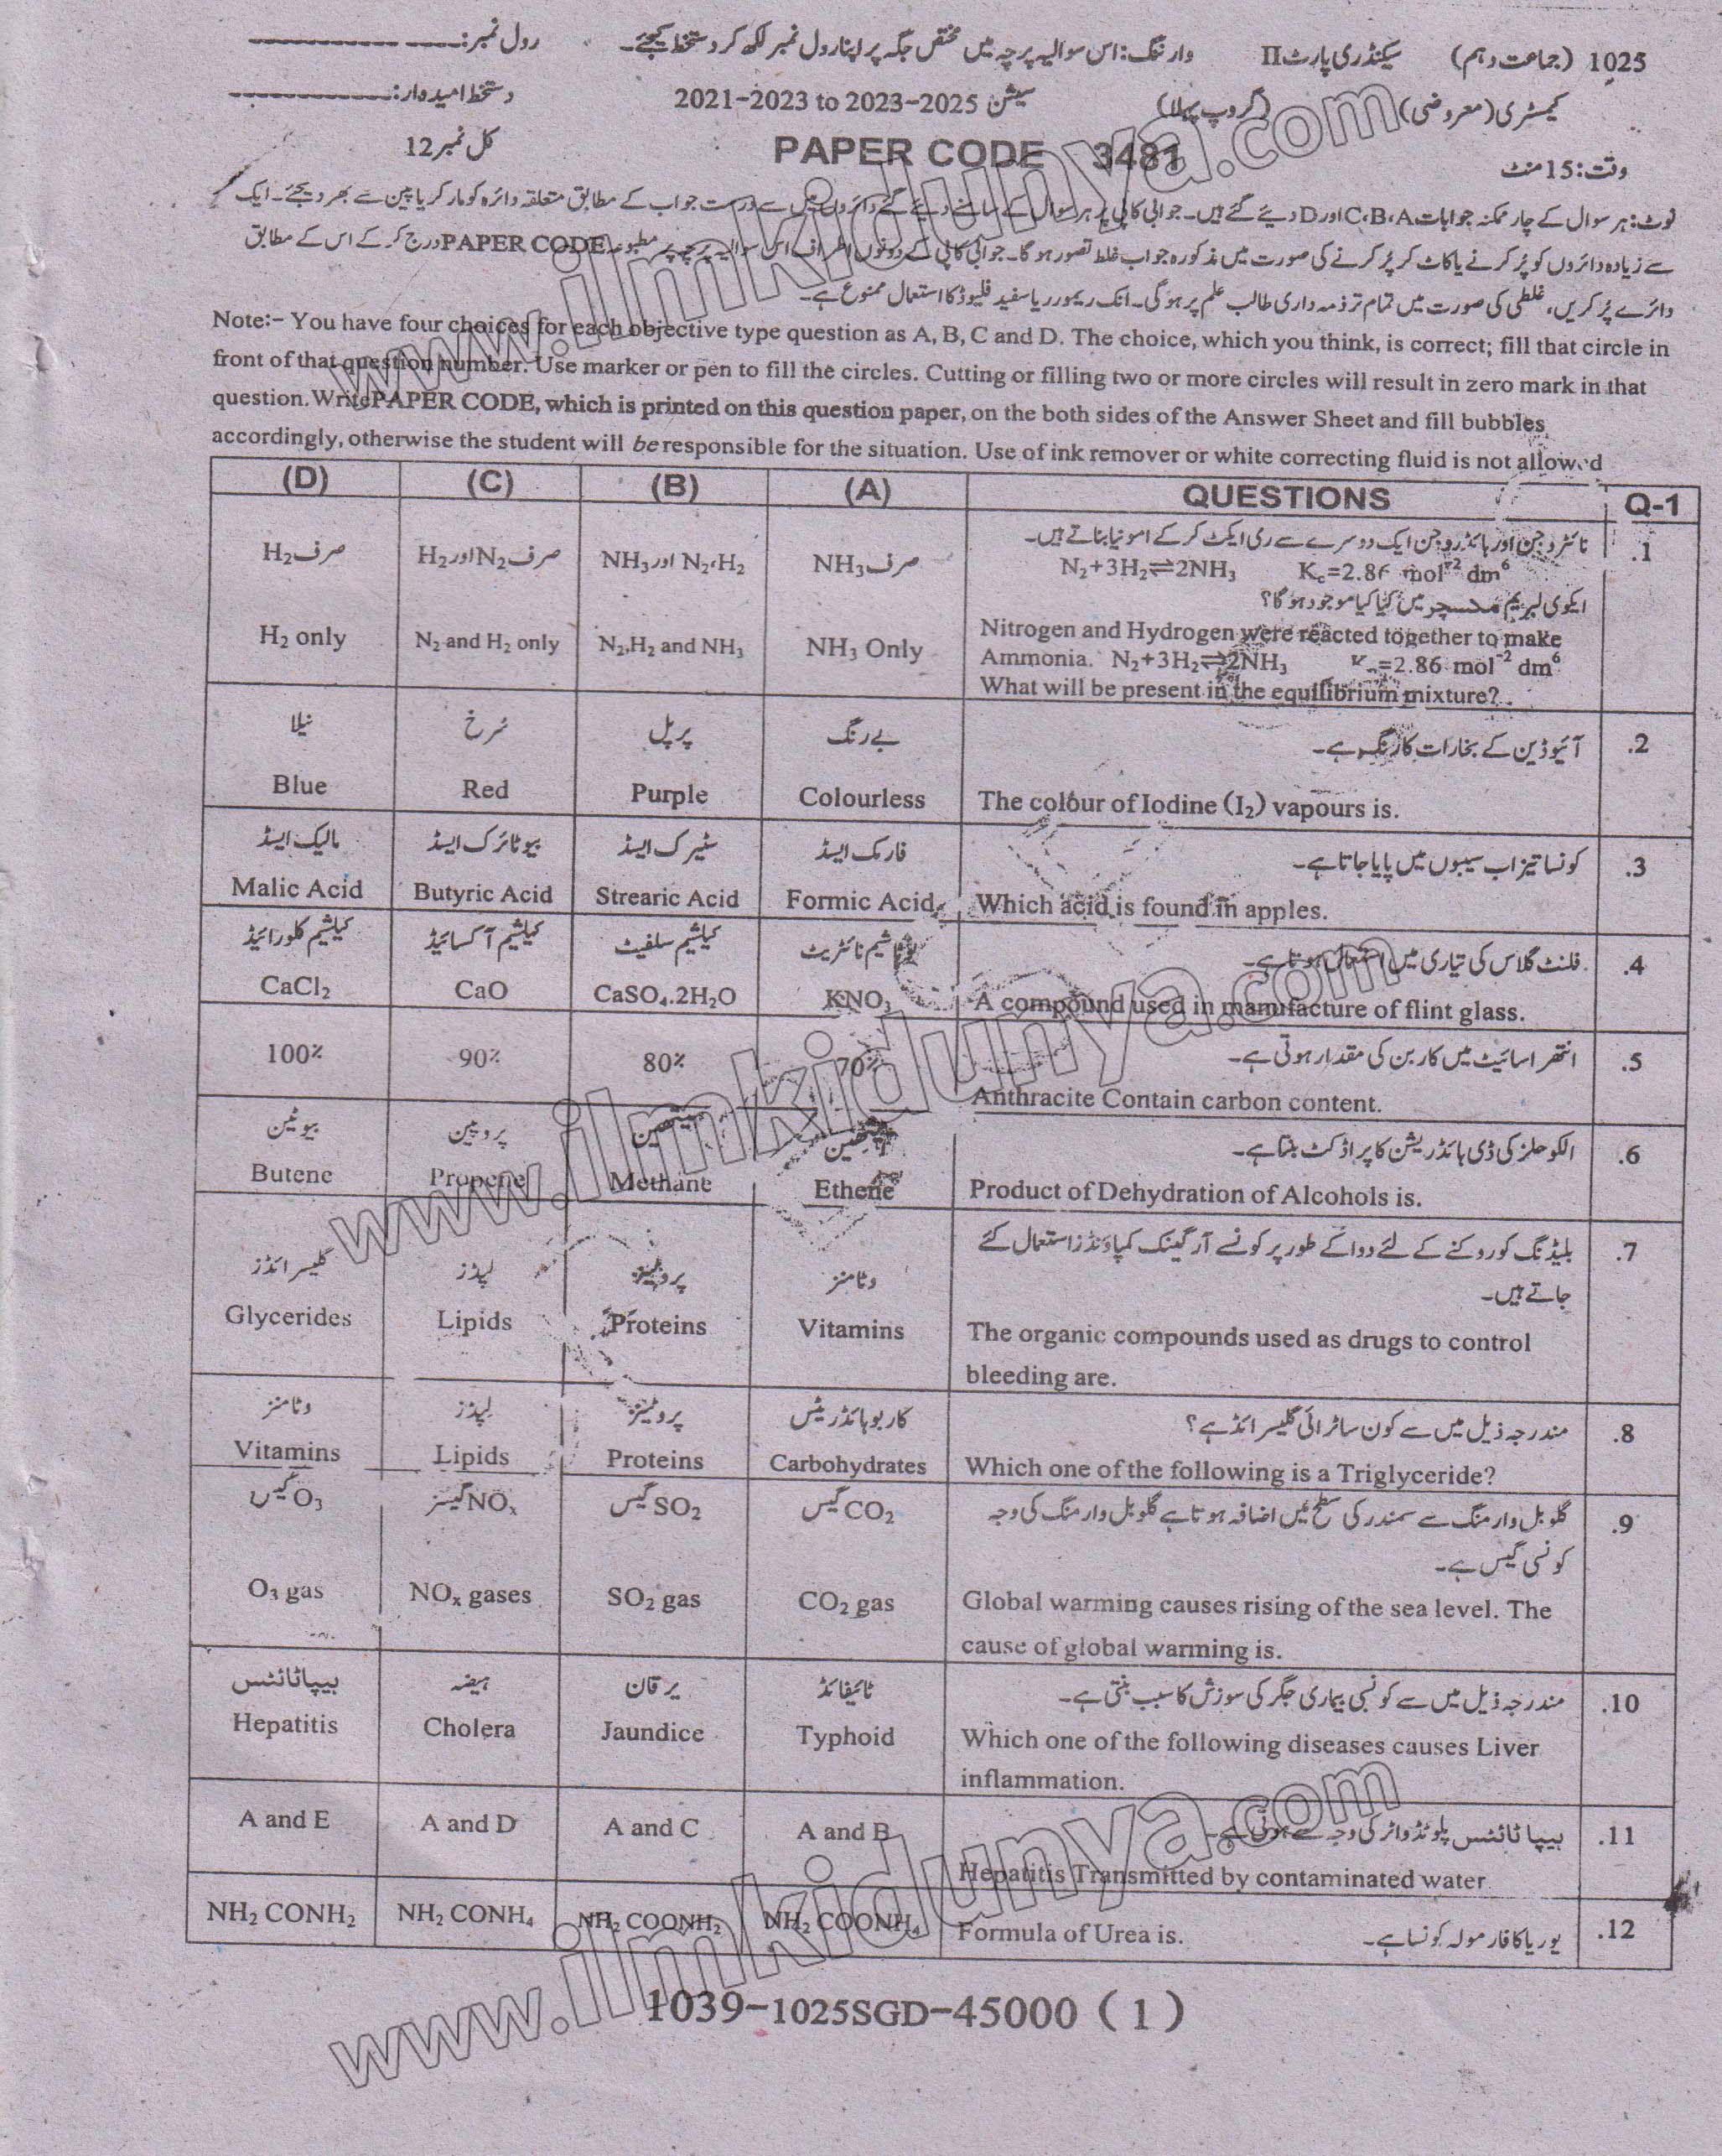 1025 (جماعت دہم) سیکنڈری پارٹ II وارننگ: اس سوالیہ پرچہ میں مختص جگہ پر اپنا رول نمبر لکھ کر دستخط کیجئے۔ رول نمبر:
کیمسٹری (معروضی) (گروپ پہلا) سیشن 2021-2023 to 2023-2025 دستخط امیدوار:
وقت: 15 منٹ PAPER CODE 3481 کل نمبر 12
نوٹ: ہر سوال کے چار ممکنہ جوابات C،B،A اور D دیئے گئے ہیں۔ جوابی کاپی پر ہر سوال کے سامنے دیئے گئے دائروں میں سے درست جواب کے مطابق متعلقہ دائرہ کو مارکر یا پین سے بھر دیجئے۔ ایک
سے زیادہ دائروں کو پُر کرنے یا کاٹ کر پُر کرنے کی صورت میں مذکورہ جواب غلط تصور ہو گا۔ جوابی کاپی کے دونوں اطراف اس سوالیہ پرچہ پر مطبوعہ PAPER CODE درج کر کے اس کے مطابق
دائرے پُر کریں، غلطی کی صورت میں تمام تر ذمہ داری طالب علم پر ہو گی۔ انک ریمور ریا سفید فلیوڈ کا استعمال ممنوع ہے۔
Note:- You have four choices for each objective type question as A, B, C and D. The choice, which you think, is correct; fill that circle in
front of that question number. Use marker or pen to fill the circles. Cutting or filling two or more circles will result in zero mark in that
question. Write PAPER CODE, which is printed on this question paper, on the both sides of the Answer Sheet and fill bubbles
accordingly, otherwise the student will be responsible for the situation. Use of ink remover or white correcting fluid is not allowed
(D) (C) (B) (A) QUESTIONS Q-1
نائٹروجن اور ہائڈروجن ایک دوسرے سے ری ایکٹ کر کے امونیا بناتے ہیں۔ .1
صرف H₂ صرف N₂ اور H₂ N₂،H₂ اور NH₃ صرف NH₃ N₂+3H₂⇌2NH₃ Kc=2.86 mol⁻² dm⁶
ایکوی لبریم مکسچر میں کیا کیا موجود ہو گا؟
H₂ only N₂ and H₂ only N₂,H₂ and NH₃ NH₃ Only Nitrogen and Hydrogen were reacted together to make
Ammonia. N₂+3H₂⇌2NH₃ Kc=2.86 mol⁻² dm⁶
What will be present in the equilibrium mixture?
نیلا سُرخ پرپل بے رنگ آئیوڈین کے بخارات کا رنگ ہے۔ .2
Blue Red Purple Colourless The colour of Iodine (I₂) vapours is.
مالیک ایسڈ بیوٹائرک ایسڈ سٹیرک ایسڈ فارمک ایسڈ کونسا تیزاب سیبوں میں پایا جاتا ہے۔ .3
Malic Acid Butyric Acid Strearic Acid Formic Acid Which acid is found in apples.
کیلشیم کلورائیڈ کیلشیم آکسائیڈ کیلشیم سلفیٹ پوٹاشیم نائٹریٹ فلنٹ گلاس کی تیاری میں استعمال ہوتا ہے۔ .4
CaCl₂ CaO CaSO₄.2H₂O KNO₃ A compound used in manufacture of flint glass.
100% 90% 80% 70% انتھراسائیٹ میں کاربن کی مقدار ہوتی ہے۔ .5
Anthracite Contain carbon content.
بیوٹین پروپین میتھین ایتھین الکوحلز کی ڈی ہائڈریشن کا پراڈکٹ بنتا ہے۔ .6
Butene Propene Methane Ethene Product of Dehydration of Alcohols is.
بلیڈنگ کو روکنے کے لئے دوا کے طور پر کونسے آرگینک کمپاؤنڈز استعمال کئے .7
گلیسرائڈز لپڈز پروٹینز وٹامنز جاتے ہیں۔
Glycerides Lipids Proteins Vitamins The organic compounds used as drugs to control
bleeding are.
وٹامنز لپڈز پروٹینز کاربوہائڈریٹس مندرجہ ذیل میں سے کون سا ٹرائی گلیسرائڈ ہے؟ .8
Vitamins Lipids Proteins Carbohydrates Which one of the following is a Triglyceride?
O₃ گیس NOₓ گیسز SO₂ گیس CO₂ گیس گلوبل وارمنگ سے سمندر کی سطح میں اضافہ ہوتا ہے گلوبل وارمنگ کی وجہ .9
کونسی گیس ہے۔
O₃ gas NOₓ gases SO₂ gas CO₂ gas Global warming causes rising of the sea level. The
cause of global warming is.
ہیپاٹائٹس ہیضہ یرقان ٹائیفائڈ مندرجہ ذیل میں سے کونسی بیماری جگر کی سوزش کا سبب بنتی ہے۔ .10
Hepatitis Cholera Jaundice Typhoid Which one of the following diseases causes Liver
inflammation.
A and E A and D A and C A and B ہیپاٹائٹس پلوٹڈ واٹر کی وجہ سے ہوتی ہے۔ .11
Hepatitis Transmitted by contaminated water.
NH₂ CONH₂ NH₂ CONH₄ NH₂ COONH₂ NH₂ COONH₄ Formula of Urea is. یوریا کا فارمولہ کونسا ہے۔ .12
1039-1025SGD-45000 (1)
www.ilmkidunya.com
www.ilmkidunya.com
www.ilmkidunya.com